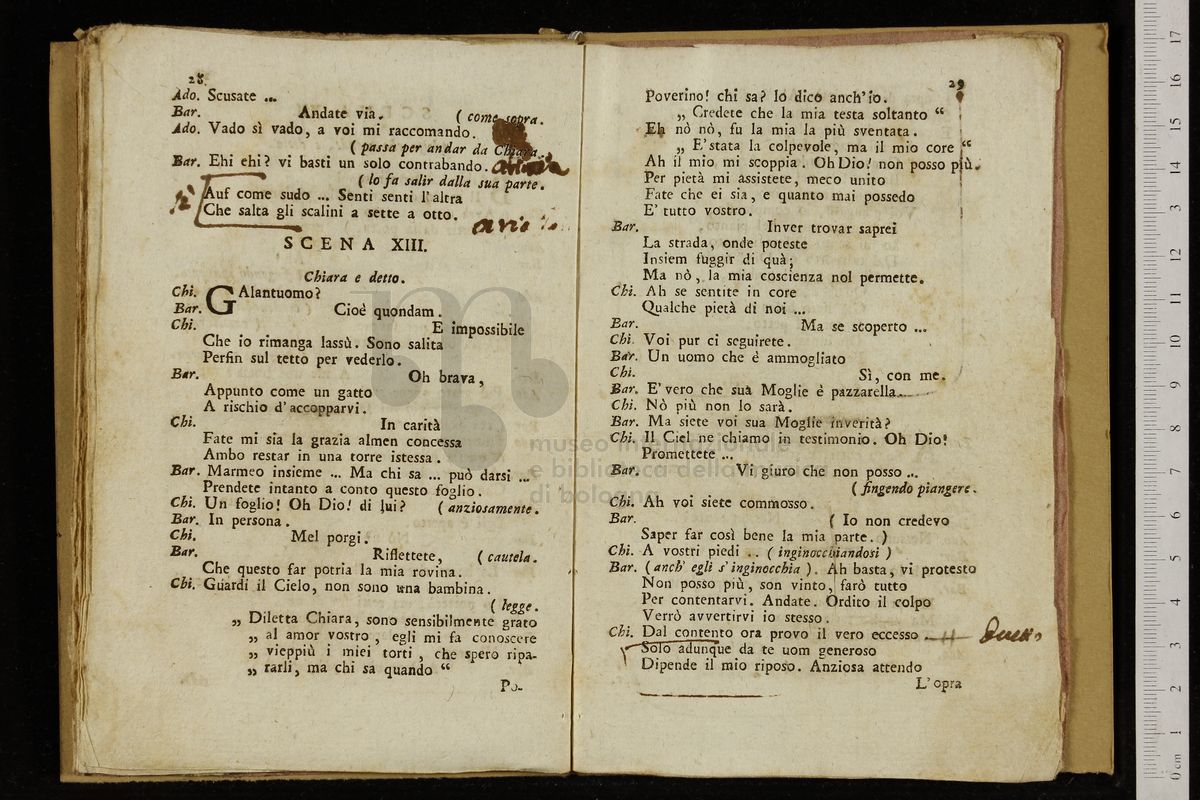 28
Ado. Scusate ...
Bar. Andate via. ( come sopra.
Ado. Vado sì vado, a voi mi raccomando.
( passa per andar da Chiara.
Bar. Ehi ehi? vi basti un solo contrabando.
( lo fa salir dalla sua parte.
Auf come sudo ... Senti senti l'altra
Che salta gli scalini a sette a otto.
SCENA XIII.
Chiara e detto.
Chi. GAlantuomo?
Bar. Cioè quondam.
Chi. E impossibile
Che io rimanga lassù. Sono salita
Perfin sul tetto per vederlo.
Bar. Oh brava,
Appunto come un gatto
A rischio d'accopparvi.
Chi. In carità
Fate mi sia la grazia almen concessa
Ambo restar in una torre istessa.
Bar. Marmeo insieme ... Ma chi sa ... può darsi ...
Prendete intanto a conto questo foglio.
Chi. Un foglio! Oh Dio! di lui? ( anziosamente.
Bar. In persona.
Chi. Mel porgi.
Bar. Riflettete, ( cautela.
Che questo far potria la mia rovina.
Chi. Guardi il Cielo, non sono una bambina.
( legge.
„ Diletta Chiara, sono sensibilmente grato
„ al amor vostro, egli mi fa conoscere
„ vieppiù i miei torti, che spero ripa-
„ rarli, ma chi sa quando “
Po-
29
Poverino! chi sa? Io dico anch'io.
„ Credete che la mia testa soltanto “
Eh nò nò, fu la mia la più sventata.
„ E'stata la colpevole, ma il mio core “
Ah il mio mi scoppia. Oh Dio! non posso più.
Per pietà mi assistete, meco unito
Fate che ei sia, e quanto mai possedo
E' tutto vostro.
Bar. Inver trovar saprei
La strada, onde poteste
Insiem fuggir di quà;
Ma nò, la mia coscienza nol permette.
Chi. Ah se sentite in core
Qualche pietà di noi ...
Bar. Ma se scoperto ...
Chi. Voi pur ci seguirete.
Bar. Un uomo che è ammogliato
Chi. Sì, con me.
Bar. E'vero che sua Moglie è pazzarella.
Chi. Nò più non lo sarà.
Bar. Ma siete voi sua Moglie inverità?
Chi. Il Ciel ne chiamo in testimonio. Oh Dio!
Promettete ...
Bar. Vi giuro che non posso ...
( fingendo piangere.
Chi. Ah voi siete commosso.
Bar. ( Io non credevo
Saper far così bene la mia parte. )
Chi. A vostri piedi .. ( inginocchiandosi )
Bar. ( anch' egli s'inginocchia ). Ah basta, vi protesto
Non posso più, son vinto, farò tutto
Per contentarvi. Andate. Ordito il colpo
Verrò avvertirvi io stesso.
Chi. Dal contento ora provo il vero eccesso
Solo adunque da te uom generoso
Dipende il mio riposo. Anziosa attendo
L'opra
museo internazionale
e biblioteca della musica
di bologna
0 cm 1 2 3 4 5 6 7 8 9 10 11 12 13 14 15 16 17